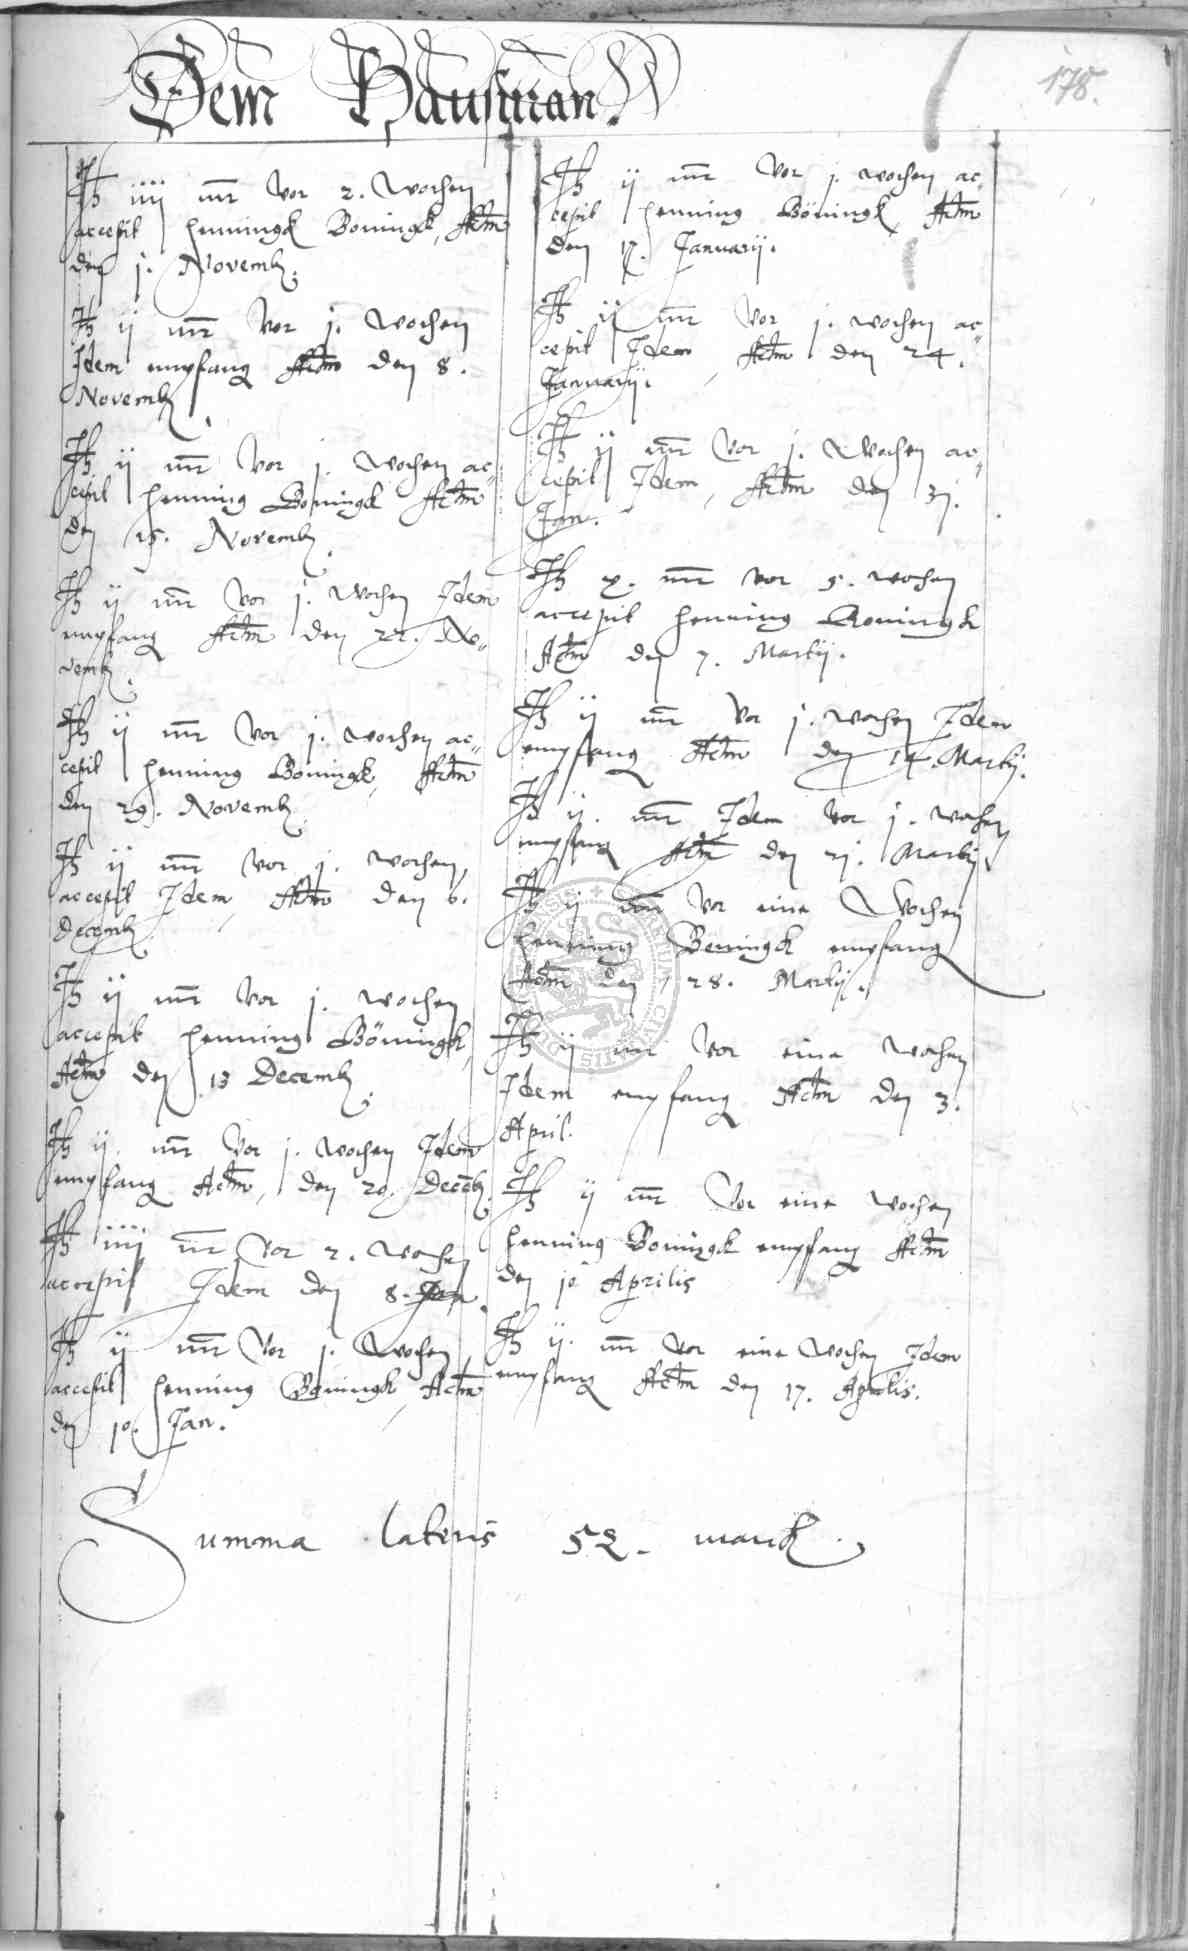 178.
Dem Hausman.
Itz iiij mr vor 2. wochen
accepit henningk Boningk, Actm
den j. Novemb.
Itz ij mr vor j. wochen
Idem empfang Actm den 8.
Novemb
Itz ij mr vor j. wochen ac„
cepit henning Boningk Actm
den 15. Novemb.
Itz ij mr vor j. wochen Idem
empfang Actm den 22. No„
vemb.
Itz ij mr vor j. wochen ac„
cepit henning Boningk, Actm
den 29. Novemb.
Itz ij mr vor j. wochen,
accepit Idem, Actm den 6.
Decemb.
Itz ij mr vor j. wochen
accepit henning Böningk,
Actm den 13 Decemb.
Itz ij. mr vor j. wochen Idem
empfang Actm, den 20. Decēb.
Itz iiij mr vor 2. wochen
accepit Idem den 8. Jan.
Itz ij mr vor j. wochen,
accepit henning Boningk, Actm
den 10. Jan.
Itz ij mr vor j. wochen ac„
cepit henning Böningk, Actm
den 17. Januarij.
Itz ij mr vor j. wochen ac„
cepit Idem, Actm den 24.
Januarij.
Itz ij mr vor j. wochen ac„
cepit Idem, Actm den 3j.
Jan.
Itz x. mr vor 5. wochen
accepit henning Boningk
Actm den 7. Martij.
Itz ij mr vor j. wochen Idem
empfang Actm den 14 Martij.
Itz ij. mr Idem vor j. wochen
empfang Actm den 2j. Martij.
Itz ij mr vor eine Wochen
henning Boningk empfang
Actm den 28. Martij.
Itz ij mr vor eine wochen
Idem empfang Actm den 3.
April.
Itz ij mr vor eine wochen
henning Boningk empfang Actm
den 10 Aprilis
Itz ij. mr vor eine wochen Idem
empfang Actm den 17. Aprilis.
Summa lateris 52. marck.